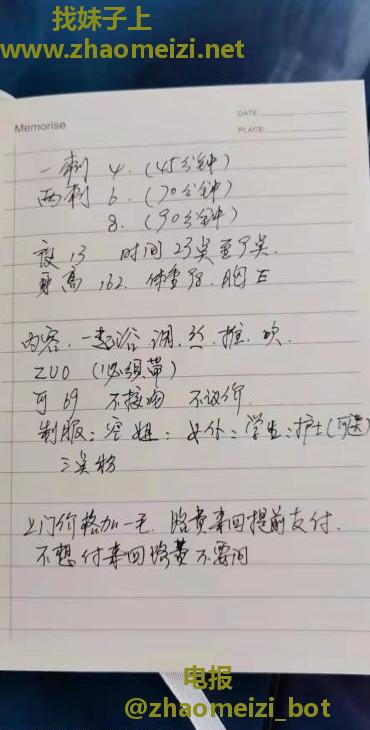 找妹子上
www.zhaomeizi.net
Memorise
DATE
PLACE
一刺 4. (45分钟)
两刺 6. (70分钟)
8. (90分钟)
夜 13 时间 23点至9点.
身高 162. 体重98. 胸E
内容. 一起浴. 调. 丝. 推. 吹.
ZUO (必须带)
可 69 不接吻 不议价.
制服: 空姐: 女仆: 学生: 护士(可选)
三点粉
上门价格加一毛. 路费来回提前支付.
不想付来回路费不要问
电报
@zhaomeizi_bot